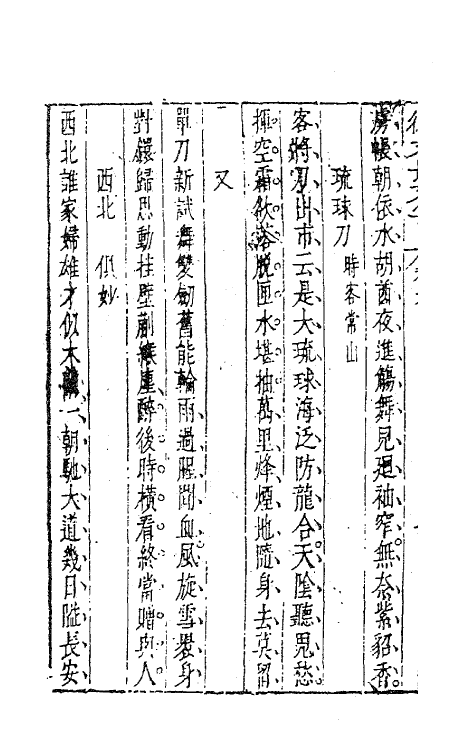 虜帳朝依水胡酋夜進觴舞見廻袖窄無奈紫貂香
琉球刀 時客常山
客將刀出市云是大琉球海泛防龍合天陰聽鬼愁
揮空霜欲落脫匣水堪抽萬里烽煙地隨身去莫留
又
單刀新試舞雙劒舊能輪雨過腥聞血風旋雪裹身
對鐶歸思動挂壁蘚痕塵醉後時橫看終當贈與人
西北 似妙
西北誰家婦雄才似木蘭一朝馳大道幾日隘長安